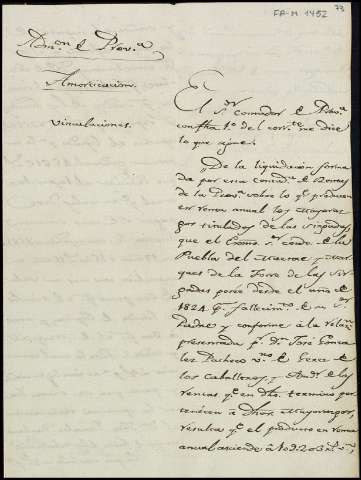 FA-M 1452
73
Admon. de Prova.
Amortizacion.
Vinculaciones.
El Sr. Contador de Prova.
con fha 1º del corrte. me dice
lo que sigue.
"De la liquidacion forma
da por esta contada. de Rentas
de la Prova. sobre lo q. producen
en renta anual los Mayoraz
gos titulados de las
que el Exmo. Sr. conde de la
Puebla del Maestre y Marq
ques de la Torre de las Sir
gadas poseé desde el año de
1824 pr. fallecimto. de su
Padre y conforme á la relan.
presentada pr. Dn. José Gonza
lez Pacheco vno. de Xerez de
los Caballeros, y Admr. de las
rentas qe. en dho. termino per
tenecen á dhos. Mayorazgos,
resulta qe. el producto en renta
anual asciende á